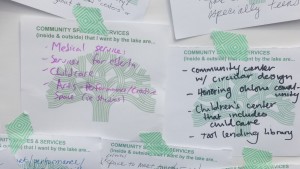 especially teens
COMMUNITY SPACES & SERVICES
(inside & outside) that I want by the lake are...
- Medical services
- Services for elderly
- Childcare
- Arts Performance/Creative
Space (ie Studios)
COMMUNITY SPACES & SERVICES
(inside & outside) that I want by the lake are...
- Community center
w/ circular design
- Honoring Ohlone community
- Children's center
that includes
childcare
- Tool lending library
COMMUNITY SPACES & SERVICES
(inside & outside) that I want by the lake are...
COMMUNITY SPACES & SERVICES
(inside & outside) that I want by the lake are...